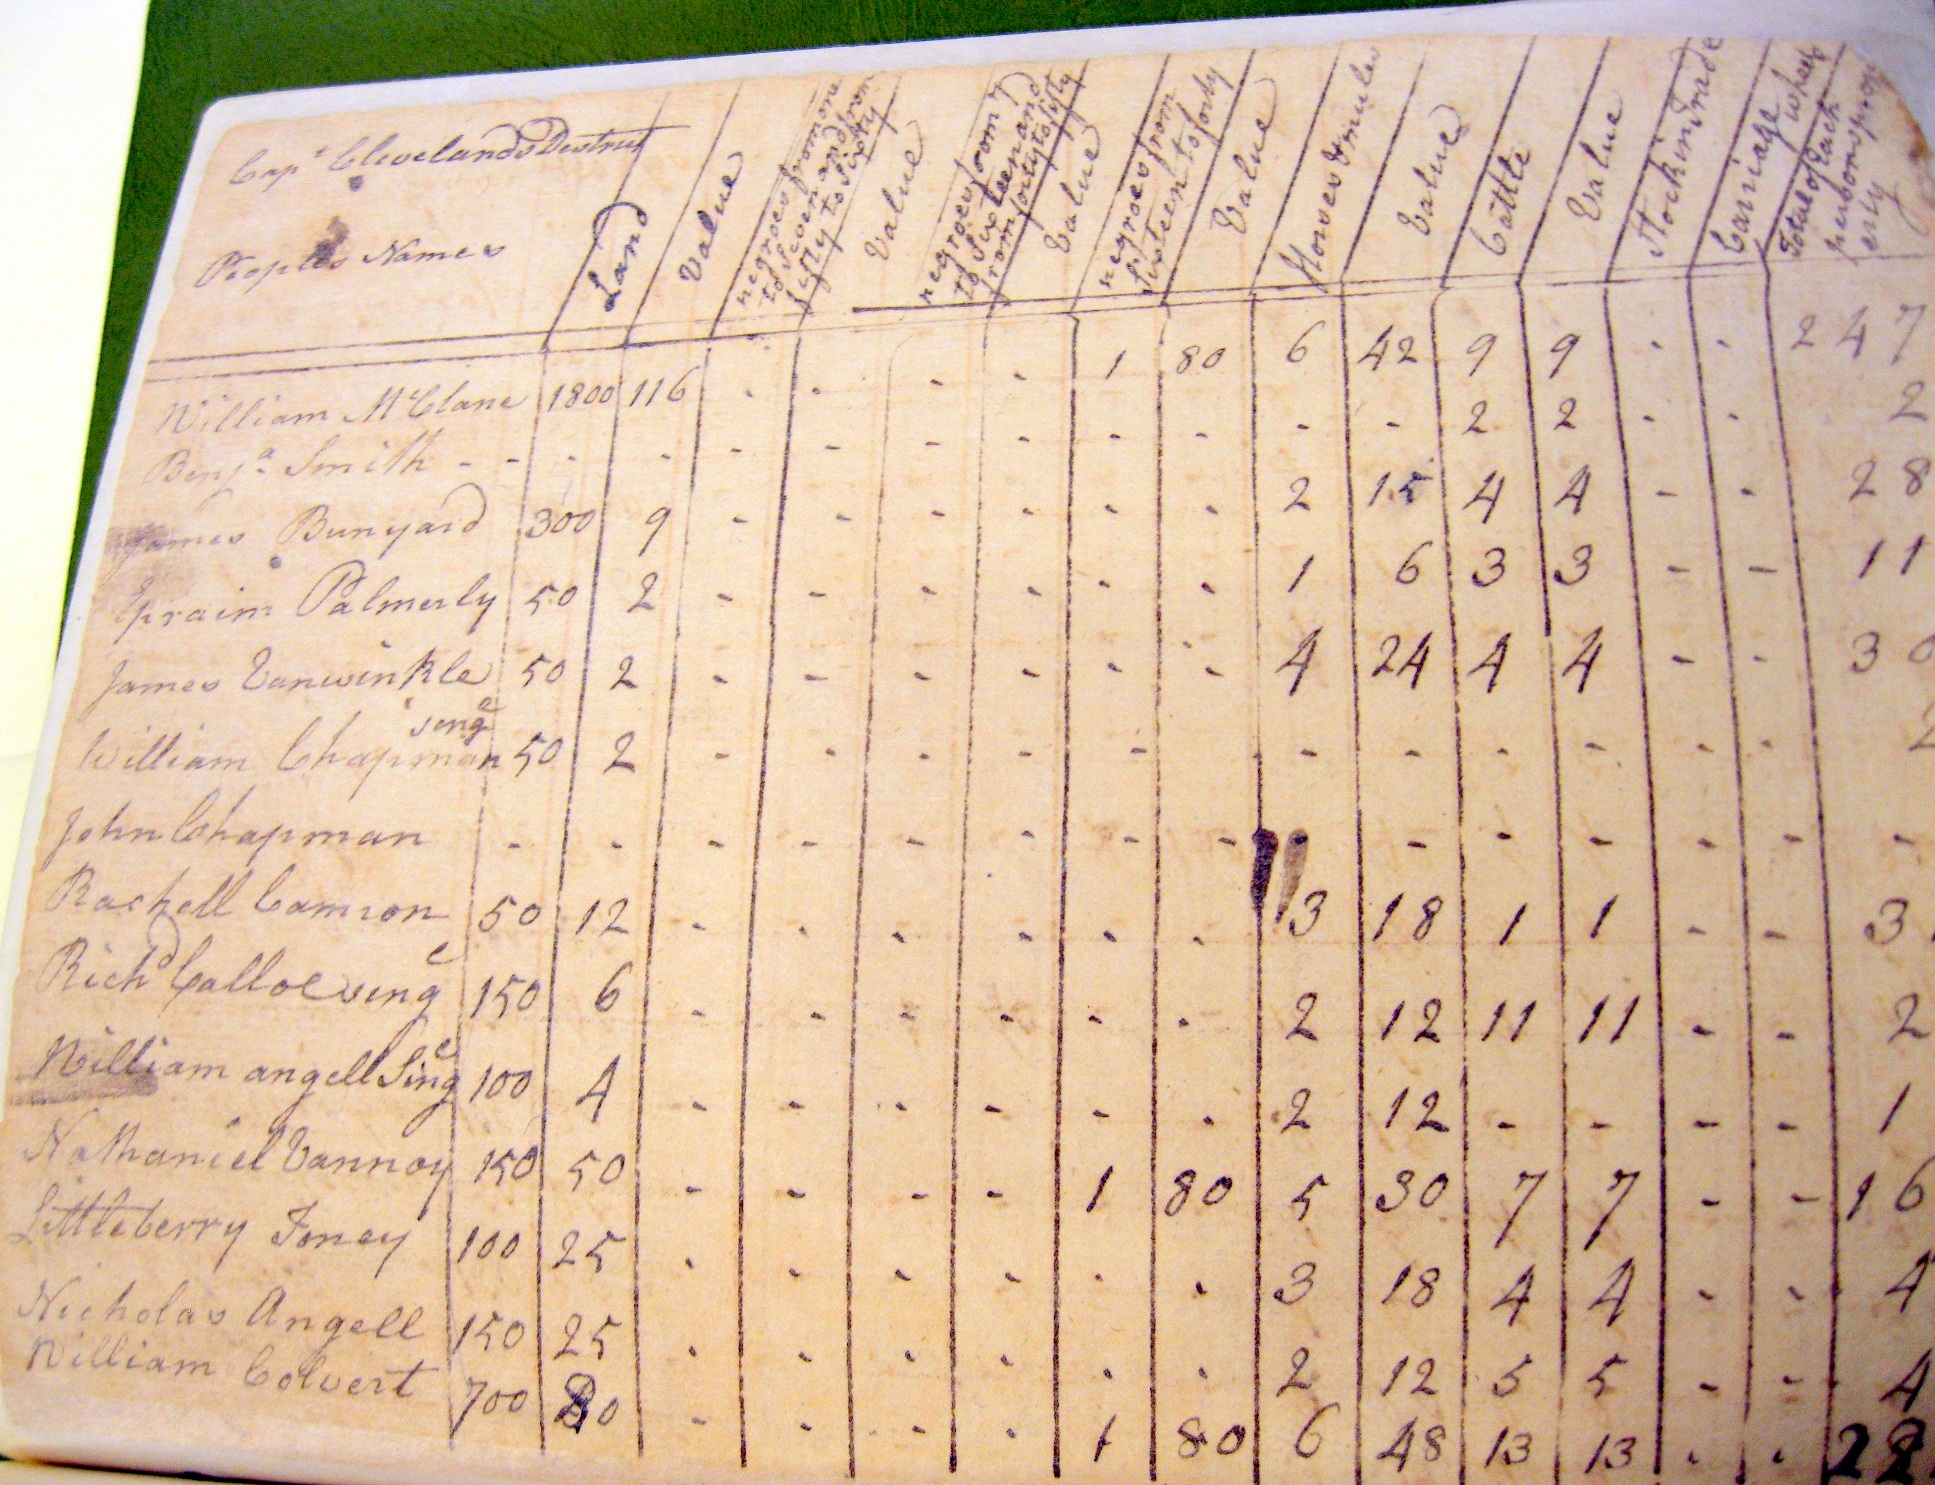 Capt Clevelands Destrict
Peoples Names
Land
Value
negroes from one to Seven and from fifty to Sixty
Value
negroes from 7 to Sixteen and from forty to fifty
Value
negroes from Sixteen to forty
Value
Horses & mules
Value
Cattle
Value
Stock in Trade
Carriage
Total of Each persons property
William McClane 1800 116 - - - - 1 80 6 42 9 9 - - 247
Benja Smith - - - - - - - - - - - - 2 2 - - 2
James Bunyard 300 9 - - - - - - 2 15 4 4 - - 28
Epraim Palmerly 50 2 - - - - - - 1 6 3 3 - - 11
James Vanwinkle 50 2 - - - - - - 4 24 4 4 - - 30
William Chapman senge 50 2 - - - - - - - - - - - - 2
John Chapman - - - - - - - - - - - - - - -
Rachell Camron 50 12 - - - - - - 3 18 1 1 - - 3
Richd Calloe singe 150 6 - - - - - - 2 12 11 11 - - 2
William angell Singe 100 4 - - - - - - 2 12 - - - - 1
Nathaniel Vannoy 150 50 - - - - 1 80 5 30 7 7 - - 16
Littleberry Toney 100 25 - - - - - - 3 18 4 4 - - 4
Nicholas Angell 150 25 - - - - - - 2 12 5 5 - - 4
William Colvert 700 80 - - - - 1 80 6 48 13 13 - - 22